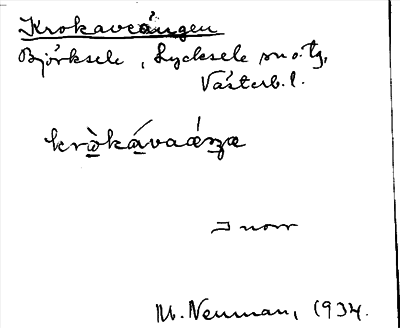 Krokaveången
Björksele, Lycksele sn o. tg,
Västerb. l.
krò̱ká̱vaáŋa
I norr
M. Neuman, 1934.